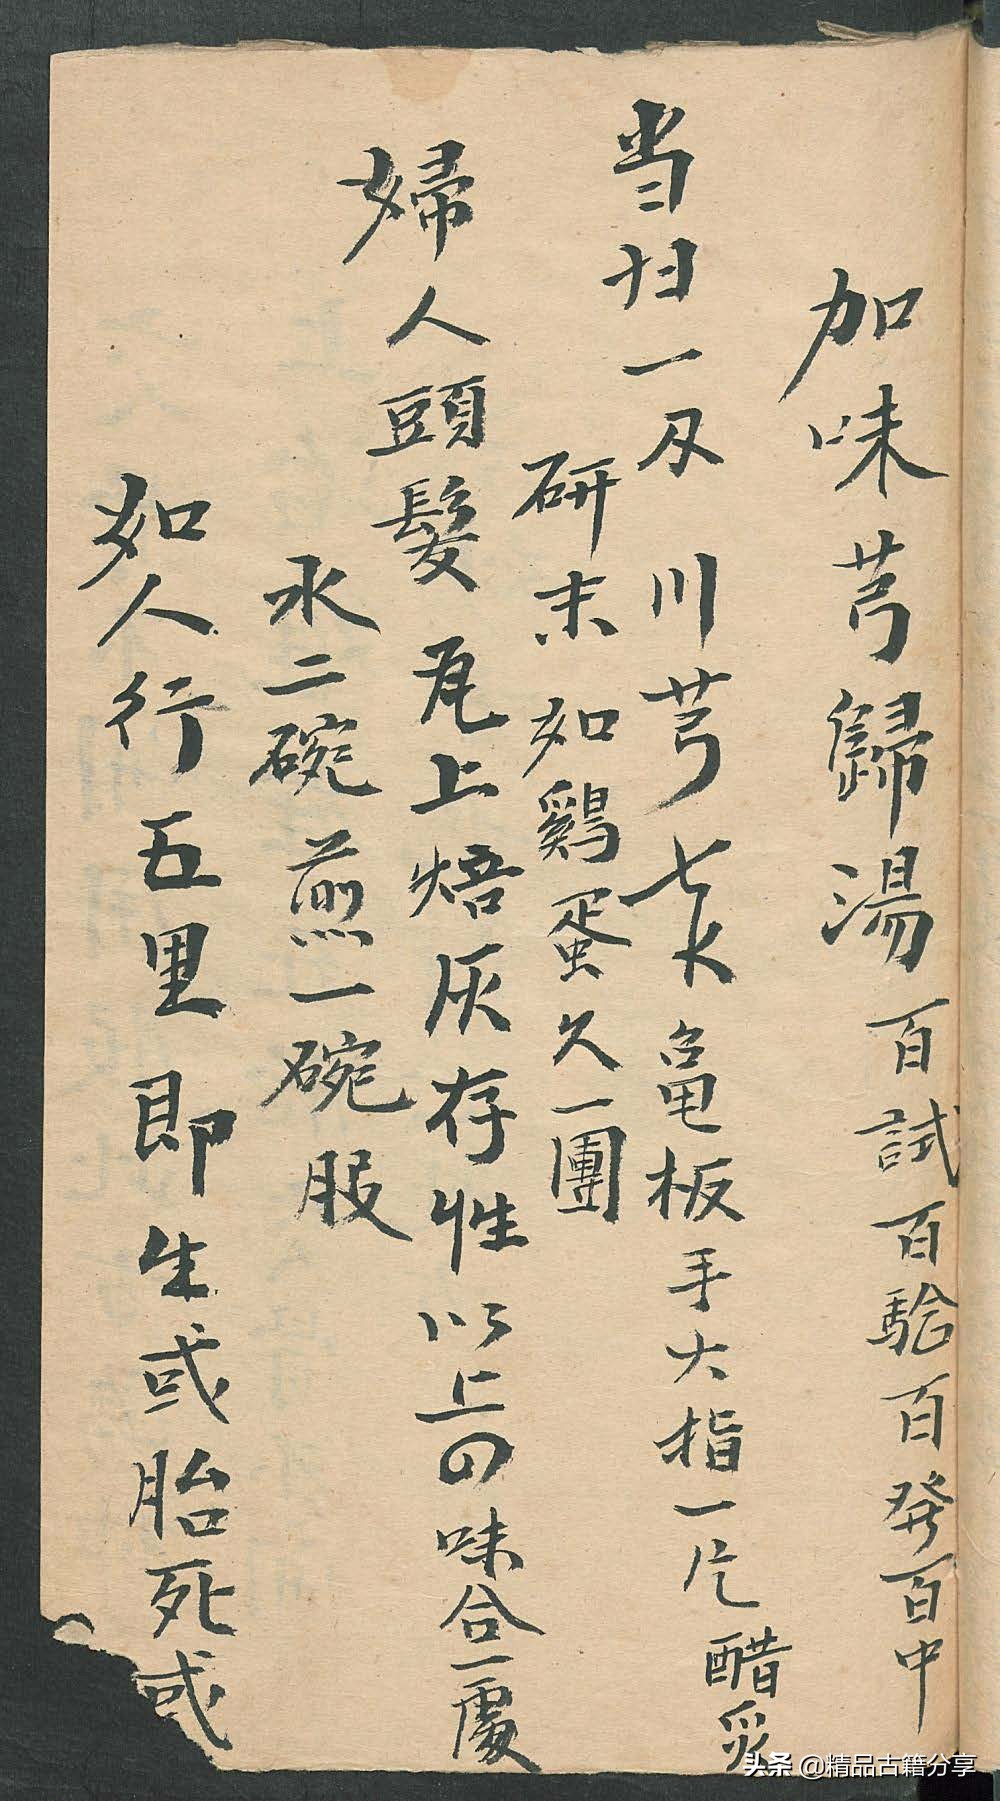 加味芎歸湯百試百騐百發百中
当归一刄川芎七朱龟板手大指一片醋炙
研末如鷄蛋久一團
婦人頭髮瓦上焙灰存性以上四味合一處
水二碗煎一碗服
如人行五里即生或胎死或
头条 @精品古籍分享